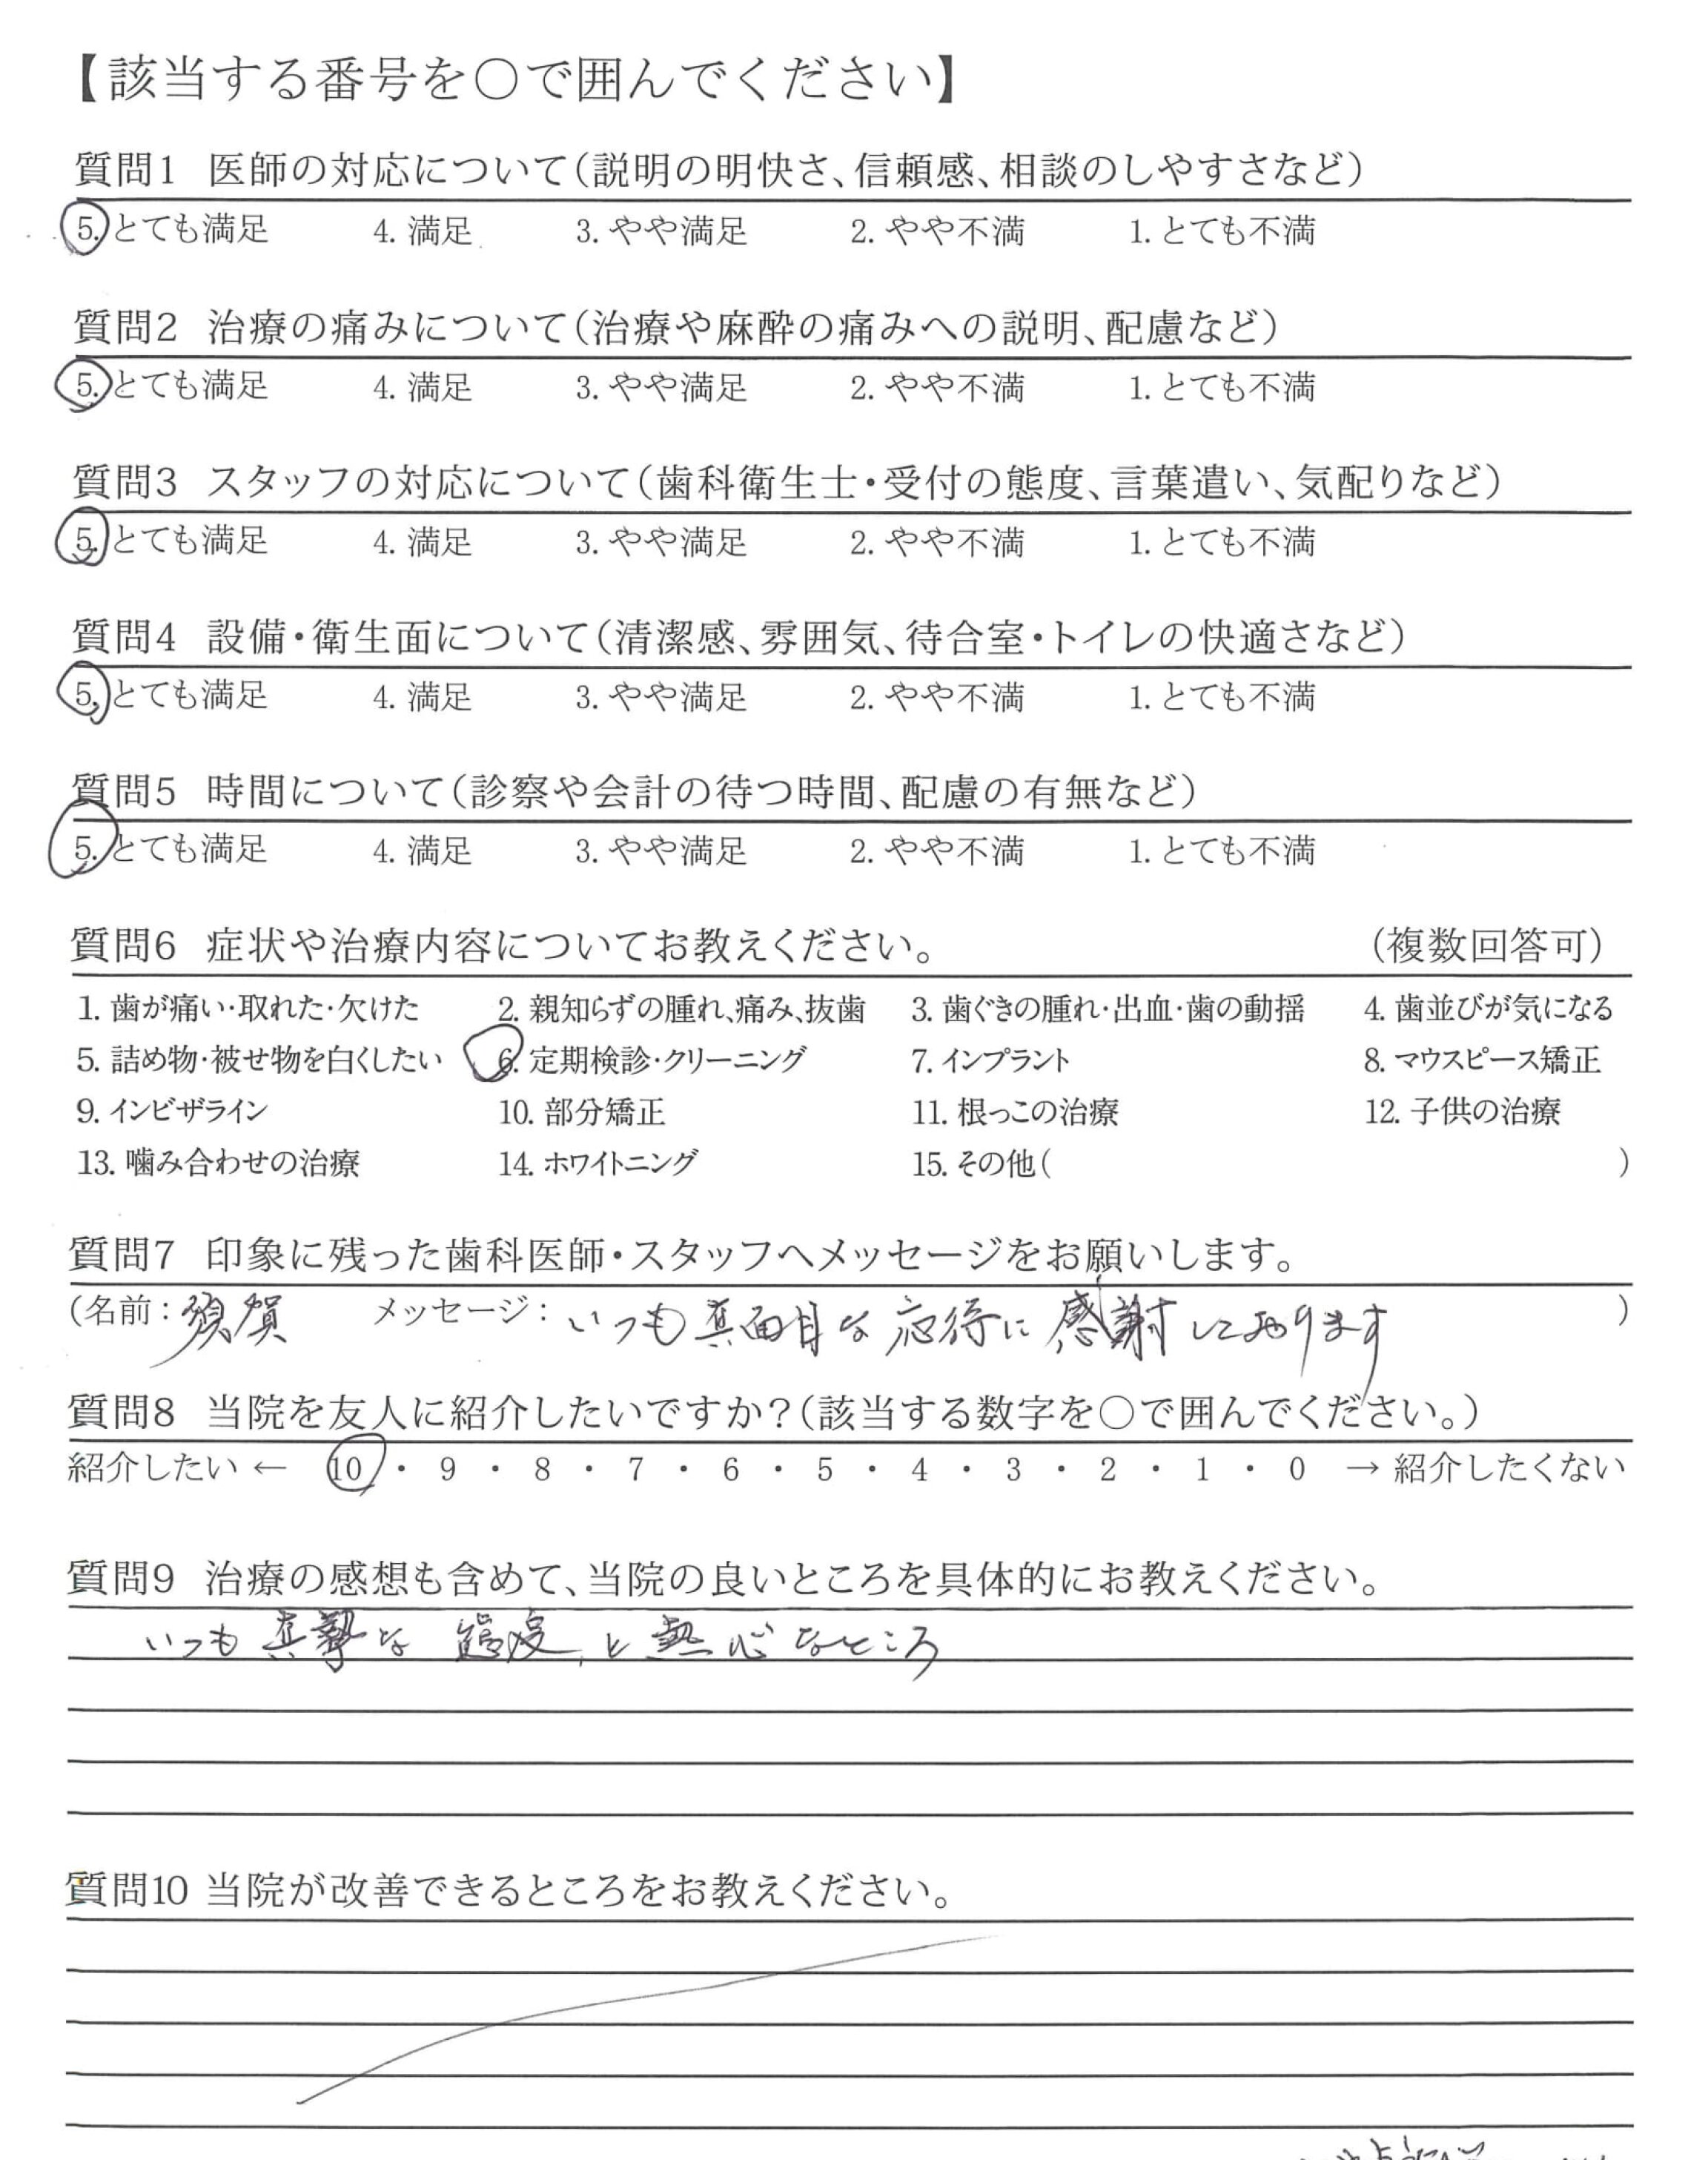 【該当する番号を○で囲んでください】
質問1 医師の対応について(説明の明快さ、信頼感、相談のしやすさなど)
5. とても満足 4. 満足 3. やや満足 2. やや不満 1. とても不満
質問2 治療の痛みについて(治療や麻酔の痛みへの説明、配慮など)
5. とても満足 4. 満足 3. やや満足 2. やや不満 1. とても不満
質問3 スタッフの対応について(歯科衛生士・受付の態度、言葉遣い、気配りなど)
5. とても満足 4. 満足 3. やや満足 2. やや不満 1. とても不満
質問4 設備・衛生面について(清潔感、雰囲気、待合室・トイレの快適さなど)
5. とても満足 4. 満足 3. やや満足 2. やや不満 1. とても不満
質問5 時間について(診察や会計の待つ時間、配慮の有無など)
5. とても満足 4. 満足 3. やや満足 2. やや不満 1. とても不満
質問6 症状や治療内容についてお教えください。 (複数回答可)
1. 歯が痛い・取れた・欠けた 2. 親知らずの腫れ、痛み、抜歯 3. 歯ぐきの腫れ・出血・歯の動揺 4. 歯並びが気になる
5. 詰め物・被せ物を白くしたい 6. 定期検診・クリーニング 7. インプラント 8. マウスピース矯正
9. インビザライン 10. 部分矯正 11. 根っこの治療 12. 子供の治療
13. 噛み合わせの治療 14. ホワイトニング 15. その他( )
質問7 印象に残った歯科医師・スタッフへメッセージをお願いします。
(名前：須賀 メッセージ：いつも真面目な応待に感謝しております )
質問8 当院を友人に紹介したいですか？(該当する数字を○で囲んでください。)
紹介したい ← 10 ・ 9 ・ 8 ・ 7 ・ 6 ・ 5 ・ 4 ・ 3 ・ 2 ・ 1 ・ 0 → 紹介したくない
質問9 治療の感想も含めて、当院の良いところを具体的にお教えください。
いつも真摯な態度、と熱心なところ
質問10 当院が改善できるところをお教えください。